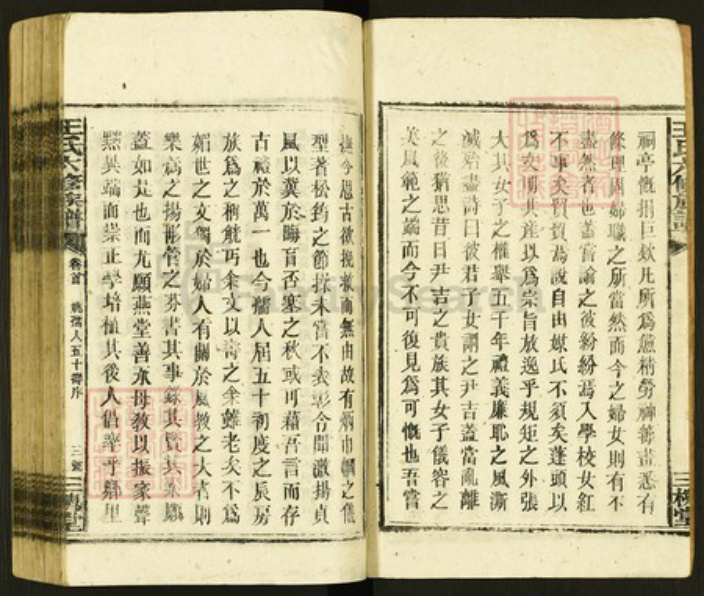 王氏六修族譜
三槐堂
祠亭慨捐巨欵凡所為憊精勞神籌畫悉有
條理固婦職之所當然而今之婦女則有不
盡然者也蓋嘗論之彼紛紛焉入學校女紅
不事矣賢質焉說自由媒氏不須矣蓬頭以
為文明共產以為崇旨放逸乎規矩之外張
大其女子之權舉五千年禮義廉恥之風澌
滅殆盡詩曰彼君子女謂之尹吉蓋當亂離
之後猶思昔日尹吉之貴族其女子儀容之
美風範之端而今不可復見為可慨也吾嘗
撫今思古欲挽救而無由故有炳巾幗之儀
型著松筠之節採未嘗不表彰令聞激揚貞
風以冀於晦盲否塞之秋或可藉吾言而存
古禮於萬一也今孺人屆五十初度之辰房
族為之稱觥丐余文以壽之余雖老矣不為
媚世之文獨於婦人有關於風教之大者則
樂為之揚彤管之芬書其事錄其賢其
蓋如是也而尤願燕堂善承母教以振家聲
黜異端而崇正學培植其後人倡率乎鄰里
王氏六修族譜
卷首
姚孺人五十壽序
三
三槐堂